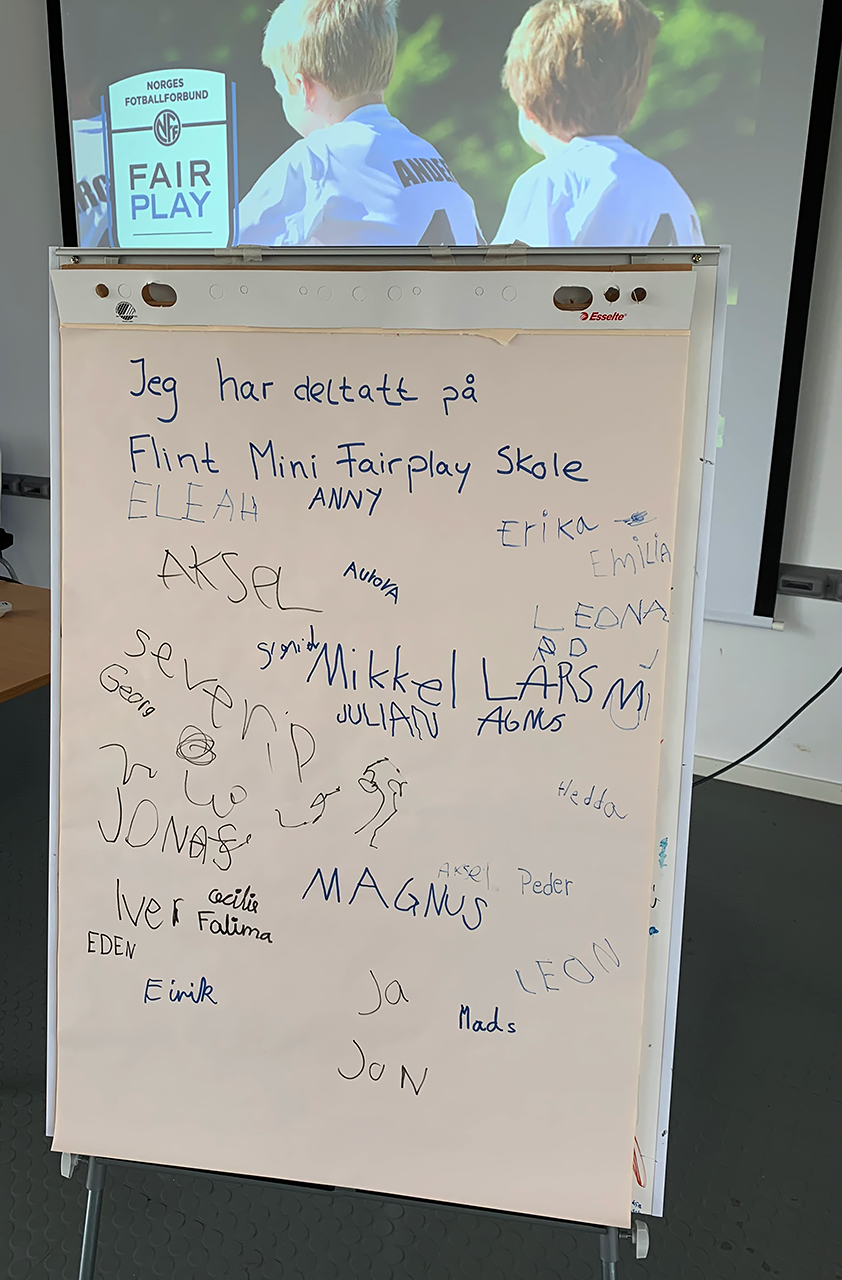 NORGES
FOTBALLFORBUND
NFF
FAIR
PLAY
ANDE
Esselte
Jeg har deltatt på
Flint Mini Fairplay Skole
ELEAH ANNY
Erika
EMILIA
AKSEL AURORA
LEONA
RD
severin
Mikkel LARS Mi
Georg
JULIAN AGNUS
Hedda
JONAS
Aksel Peder
MAGNUS
Iver cecilie
Fatima
EDEN
LEON
Eirik
Ja
Mads
JON